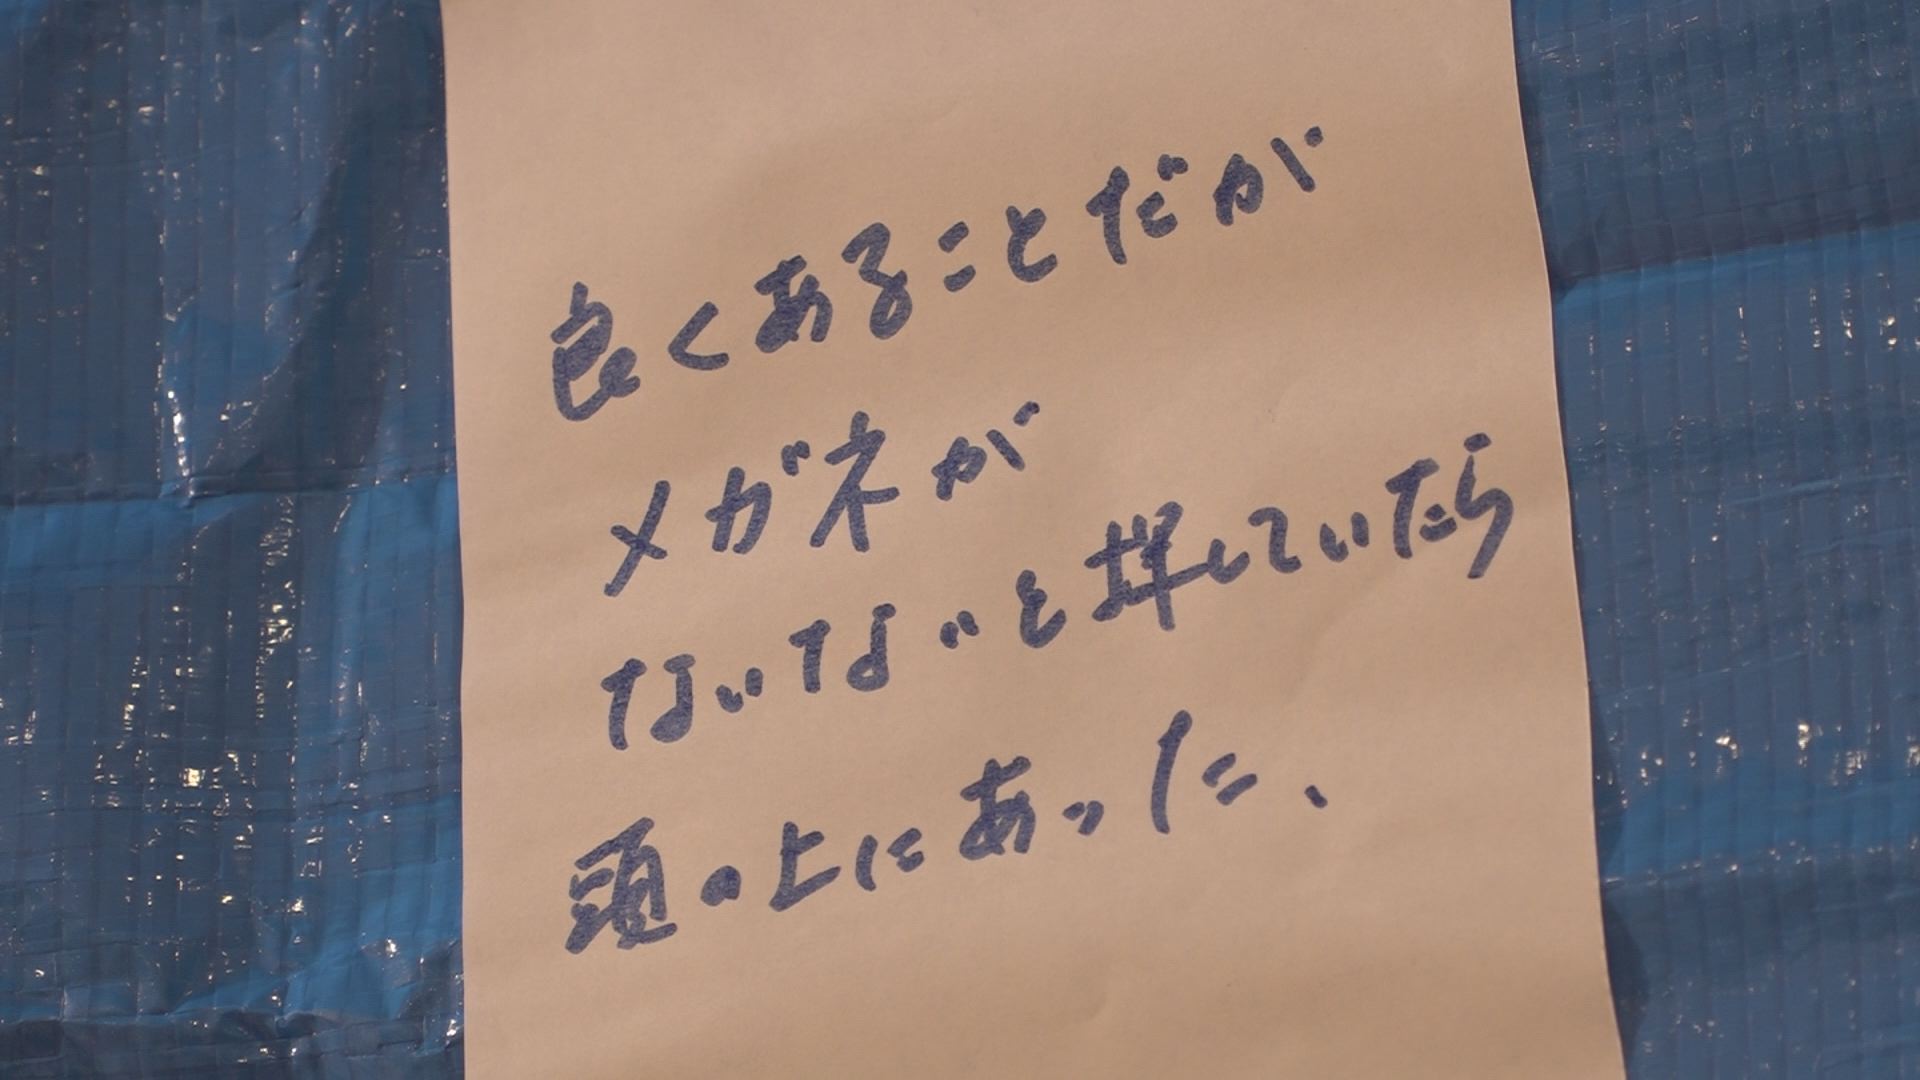 良くあることだが
メガネが
ないないと探していたら
頭の上にあった、